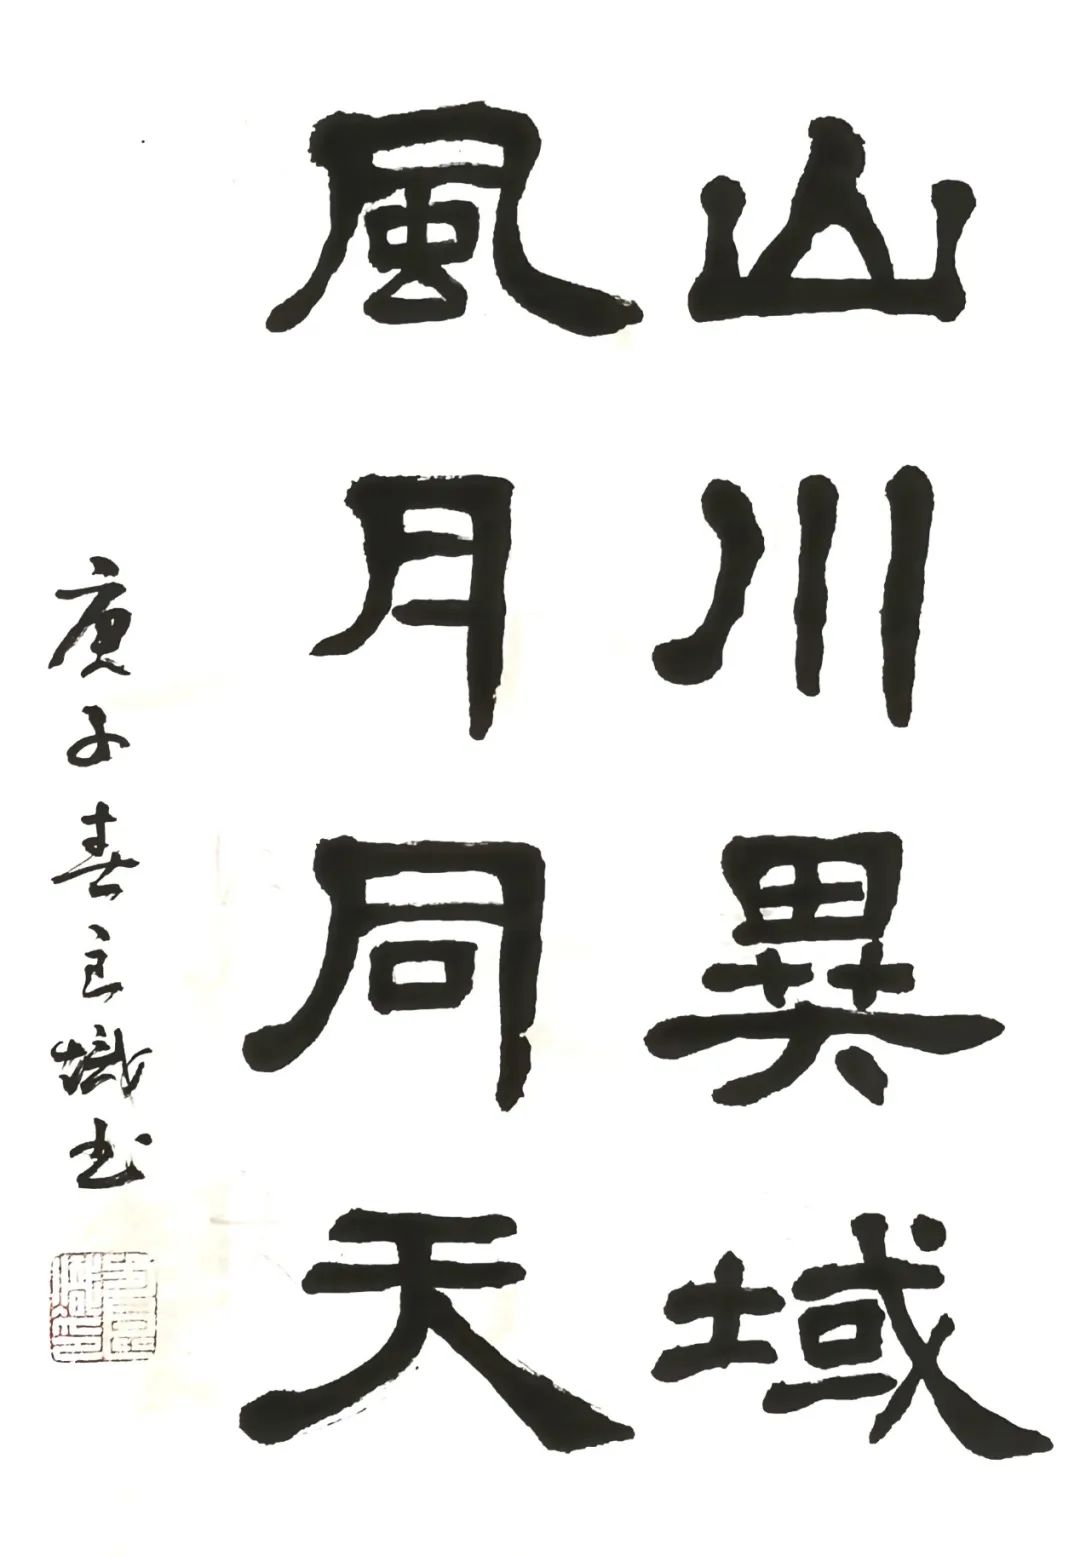 山川異域
風月同天
庚子春立炽书